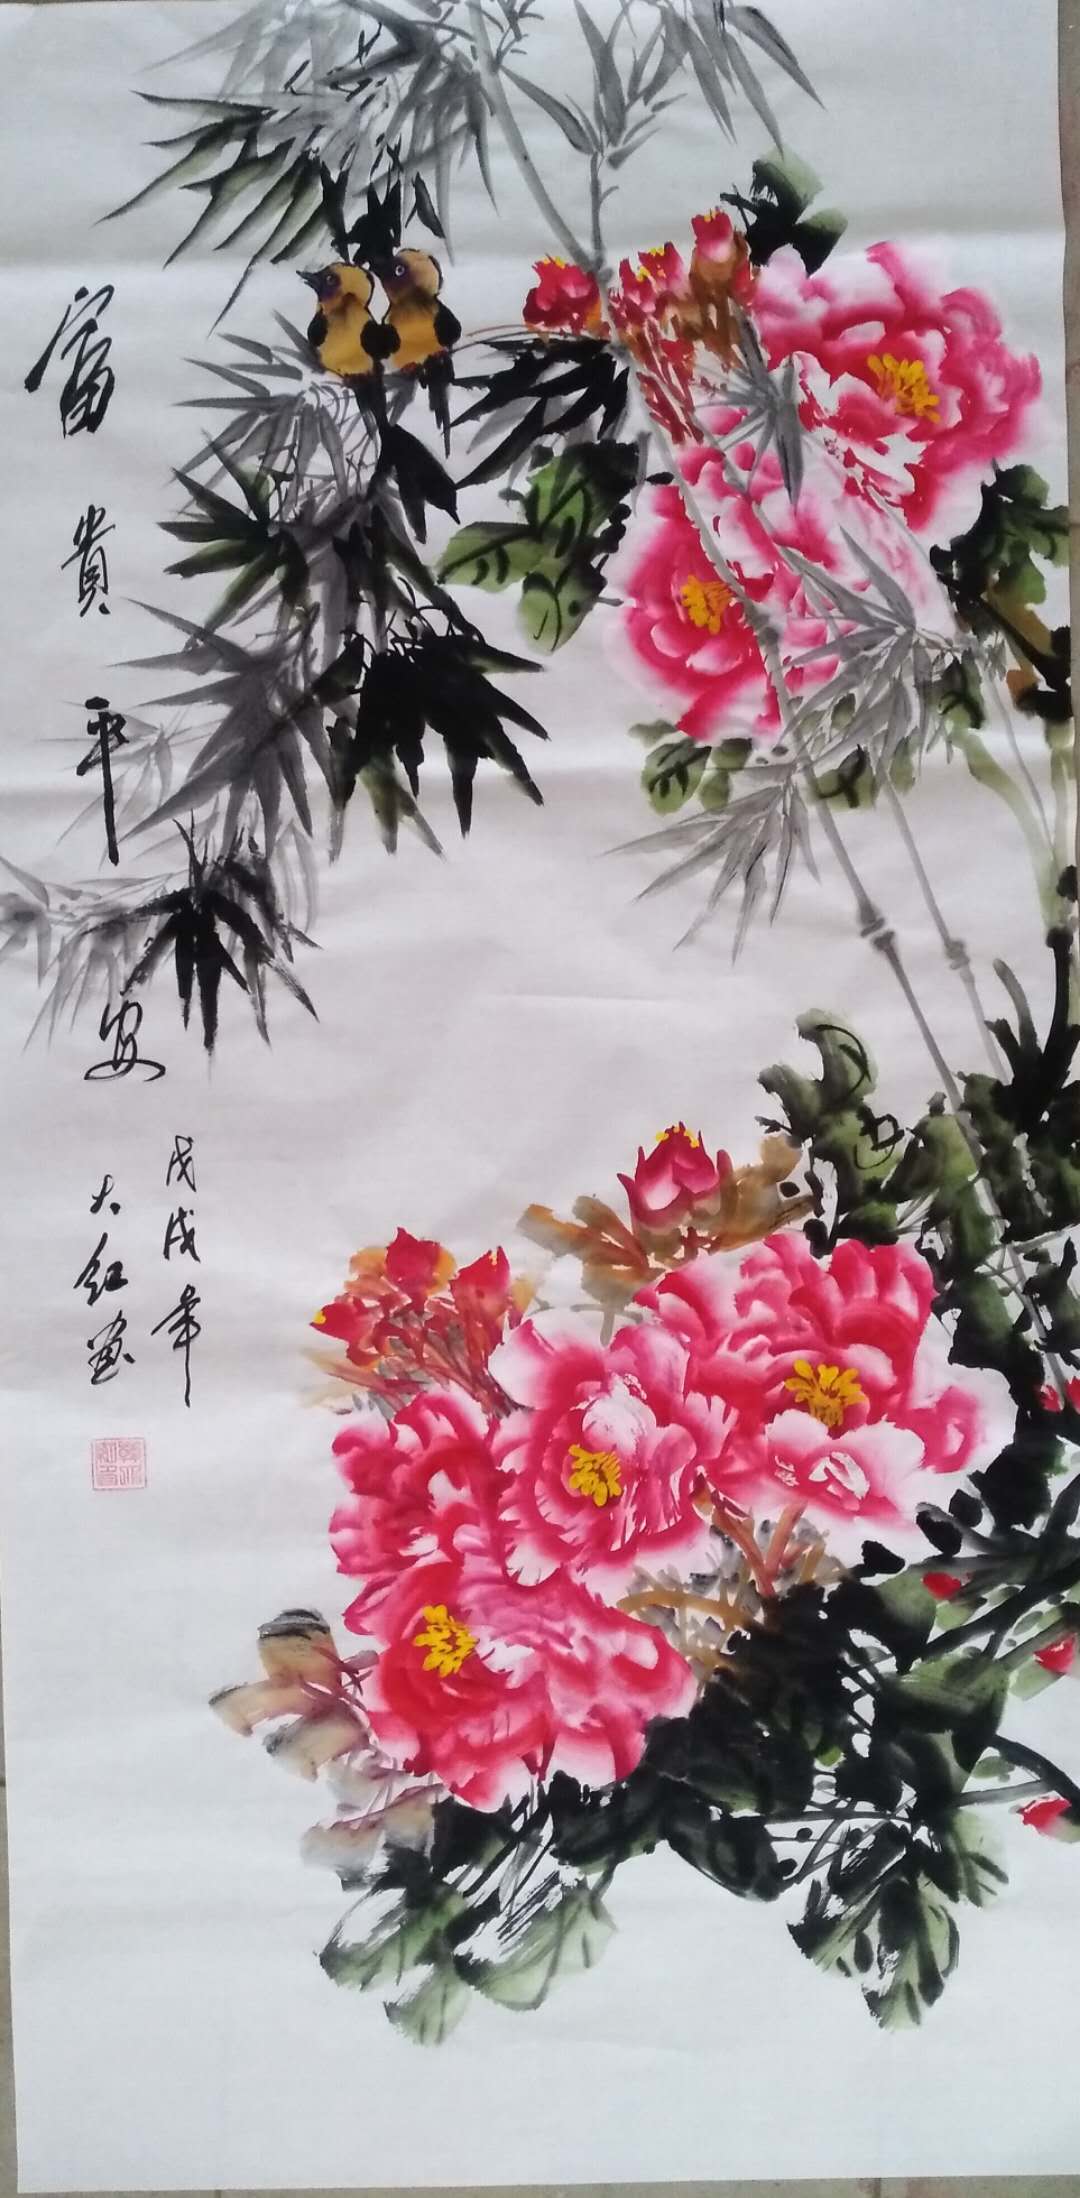 富貴平安
戊戌年
大紅畫